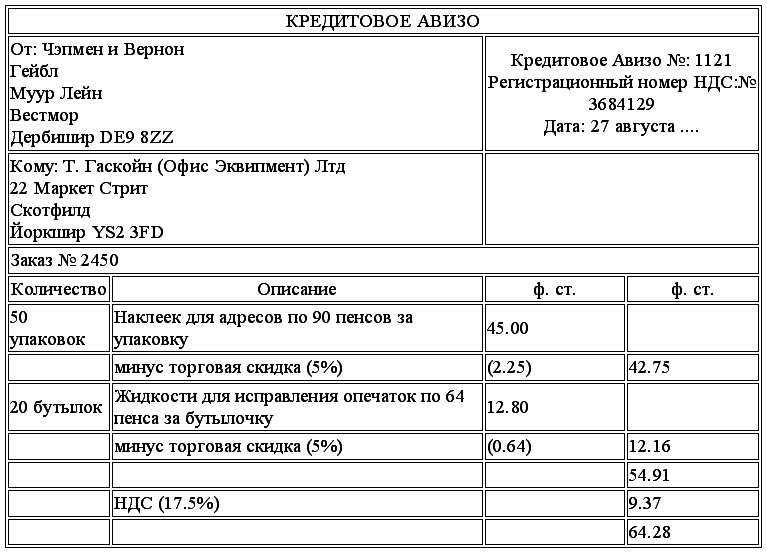 КРЕДИТОВОЕ АВИЗО
От: Чэпмен и Вернон
Гейбл
Муур Лейн
Вестмор
Дербишир DE9 8ZZ
Кредитовое Авизо №: 1121
Регистрационный номер НДС:№
3684129
Дата: 27 августа ....
Кому: Т. Гаскойн (Офис Эквипмент) Лтд
22 Маркет Стрит
Скотфилд
Йоркшир YS2 3FD
Заказ № 2450
Количество Описание ф. ст. ф. ст.
50
упаковок
Наклеек для адресов по 90 пенсов за
упаковку
45.00
минус торговая скидка (5%) (2.25) 42.75
20 бутылок
Жидкости для исправления опечаток по 64
пенса за бутылочку
12.80
минус торговая скидка (5%) (0.64) 12.16
54.91
НДС (17.5%) 9.37
64.28